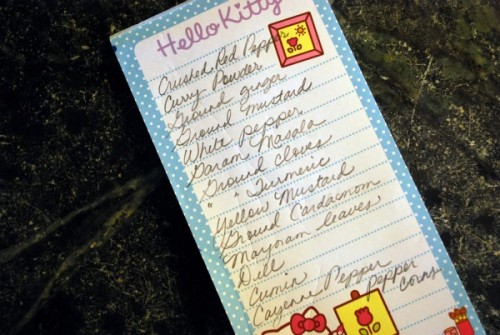 Hello Kitty
Crushed Red Pepper
Curry Powder
Ground Ginger
Ground Mustard
White Pepper
Garam Masala
Ground Cloves
" " Turmeric
Yellow Mustard
Ground Cardamom
Marjoram leaves
Dill
Cumin
Cayenne Pepper
Pepper
Corns